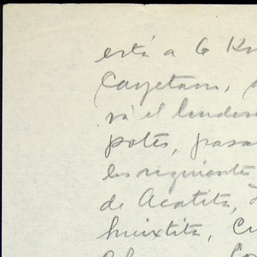 está a 6 K
Cayetano,
vá el lindero
potes, pasa
los siguientes
de Acatita,
huixtita, C